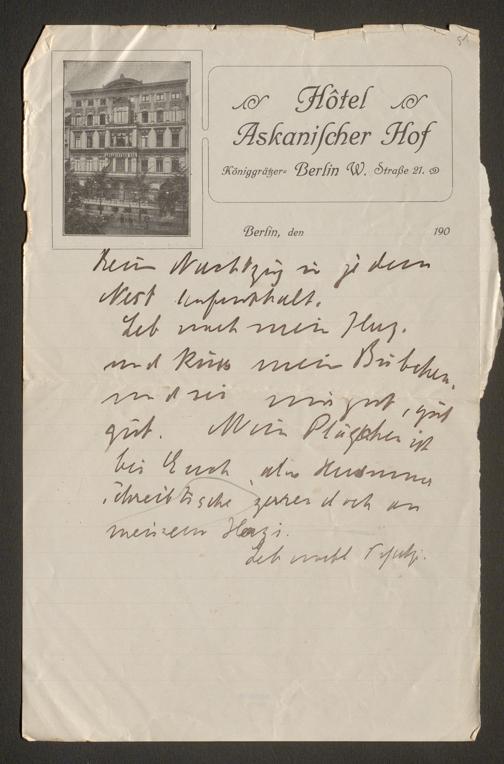 51
Hôtel
Askanischer Hof
Königgrätzer= Berlin W. Straße 21.
Berlin, den 190
Kein Nachtzug in jedem
Nest Aufenthalt.
Leb mein
und küss mein Bübchen.
und sei mir gut, gut
gut. Mein Plätzchen ist
bei Euch, die
Schreibtische zerren doch an
meinem Herzi.
Leb wohl